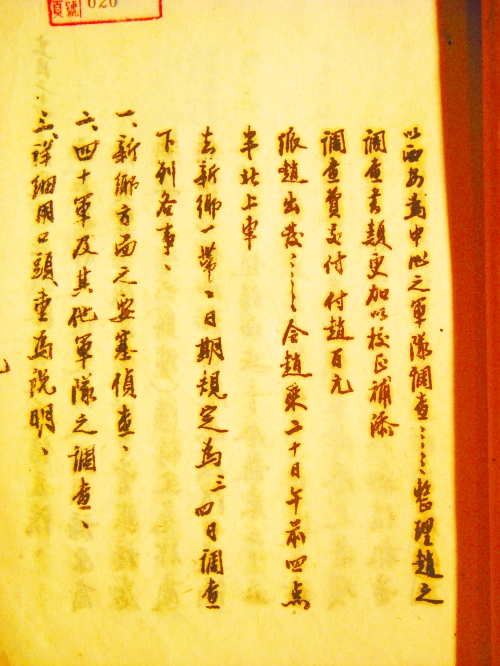 頁 號 020
以西安為中心之軍隊調查……整理趙之
調查書類更加以校正補添
調查費交付 付趙百元
派趙出發……令趙乘二十日午前四点
半北上車
去新鄉一帶、日期規定為三四日調查
下列各事、
一、新鄉方面之要塞偵查、
二、四十軍及其他軍隊之調查、
三、詳細用口頭重為說明、